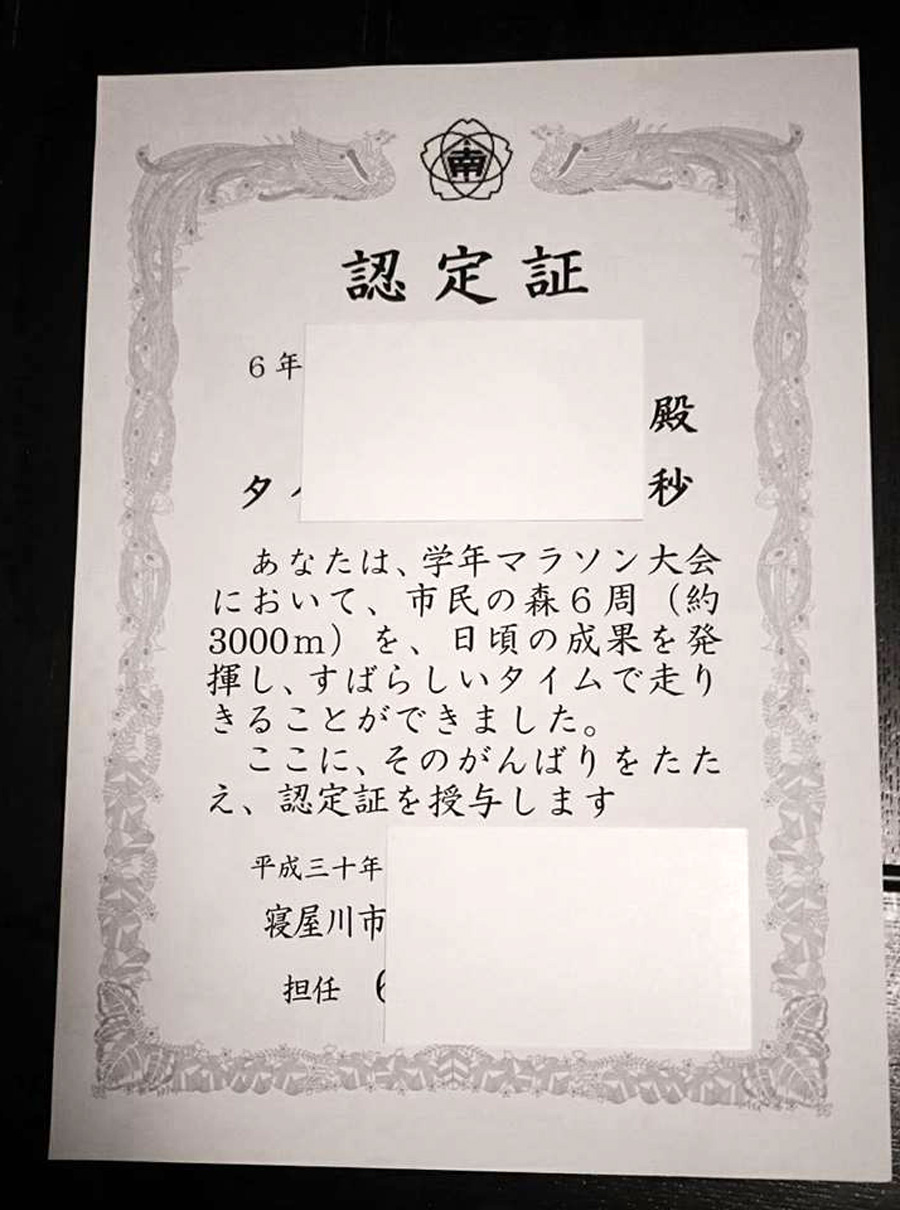 南
認定証
6年
殿
タイ
秒
あなたは、学年マラソン大会
において、市民の森6周(約
3000m)を、日頃の成果を発
揮し、すばらしいタイムで走り
きることができました。
ここに、そのがんばりをたた
え、認定証を授与します
平成三十年
寝屋川市
担任 6